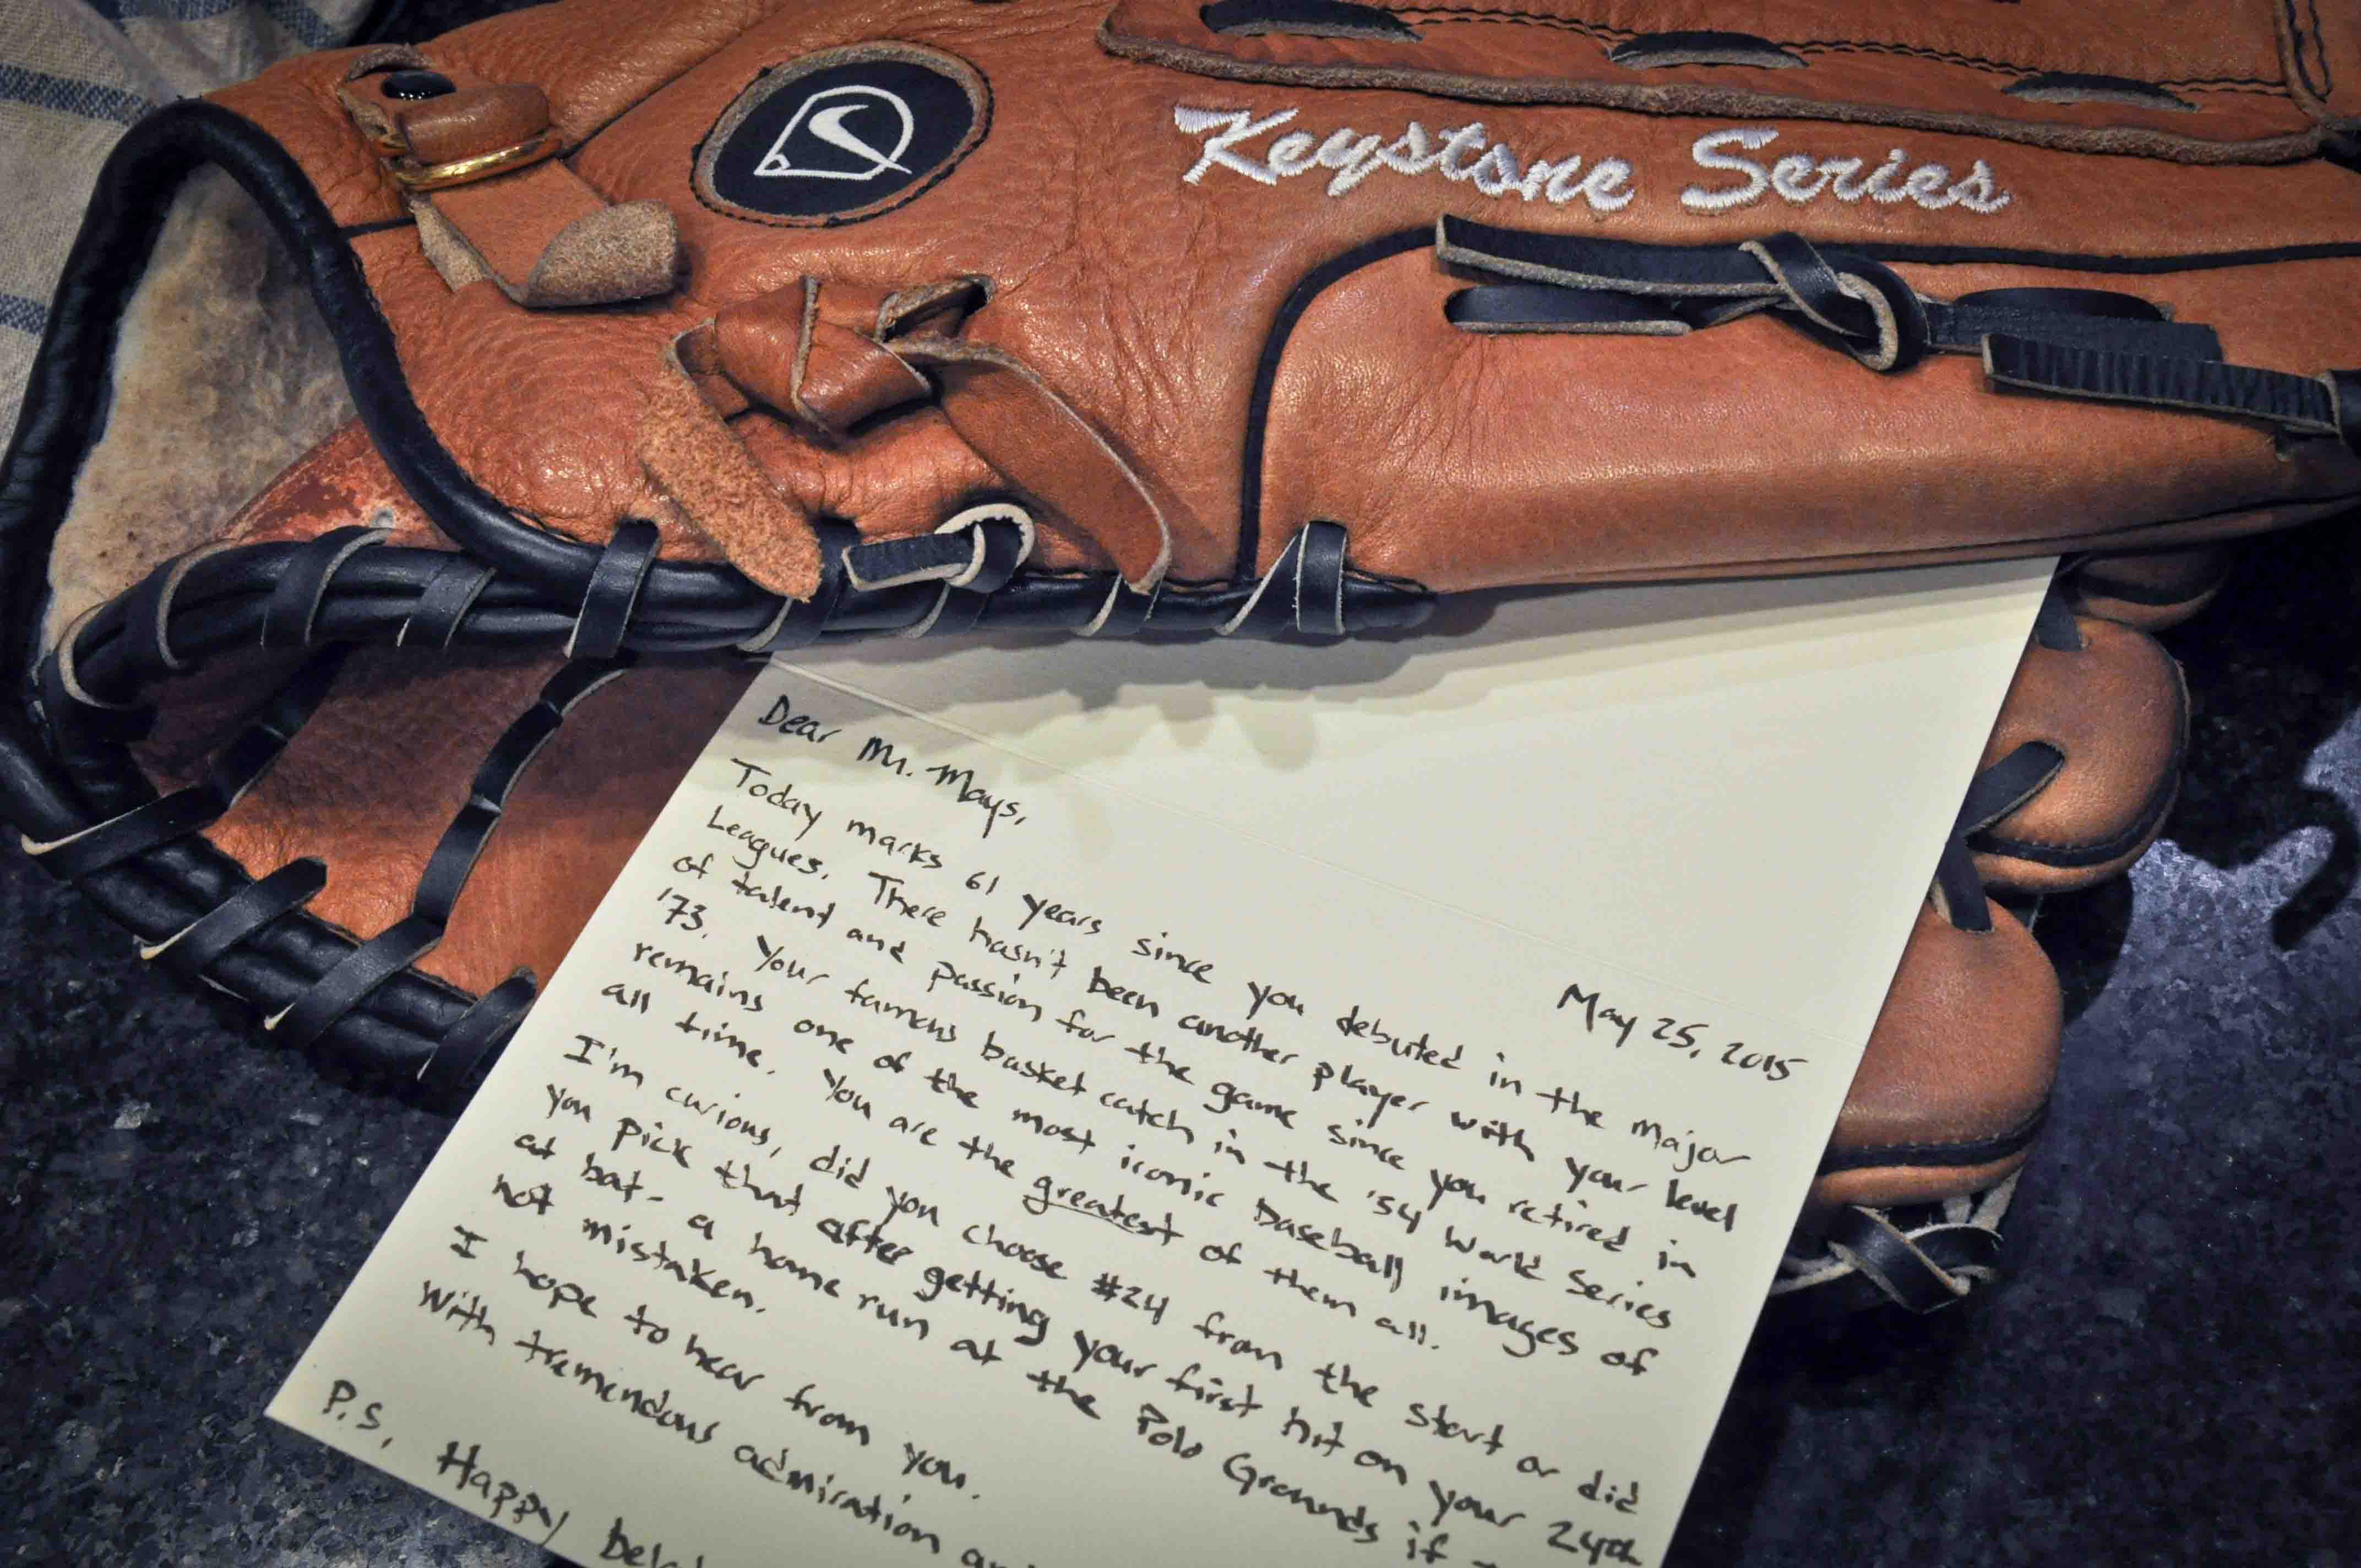 Keystone Series
May 25, 2015
Dear Mr. Mays,
Today marks 61 years since you debuted in the Major
Leagues. There hasn't been another player with your level
of talent and passion for the game since you retired in
'73. Your famous basket catch in the '54 World Series
remains one of the most iconic baseball images of
all time. You are the greatest of them all.
I'm curious, did you choose #24 from the start or did
you pick that after getting your first hit on your 24th
at bat - a home run at the Polo Grounds if
not mistaken.
I hope to hear from you.
With tremendous admiration
P.S. Happy